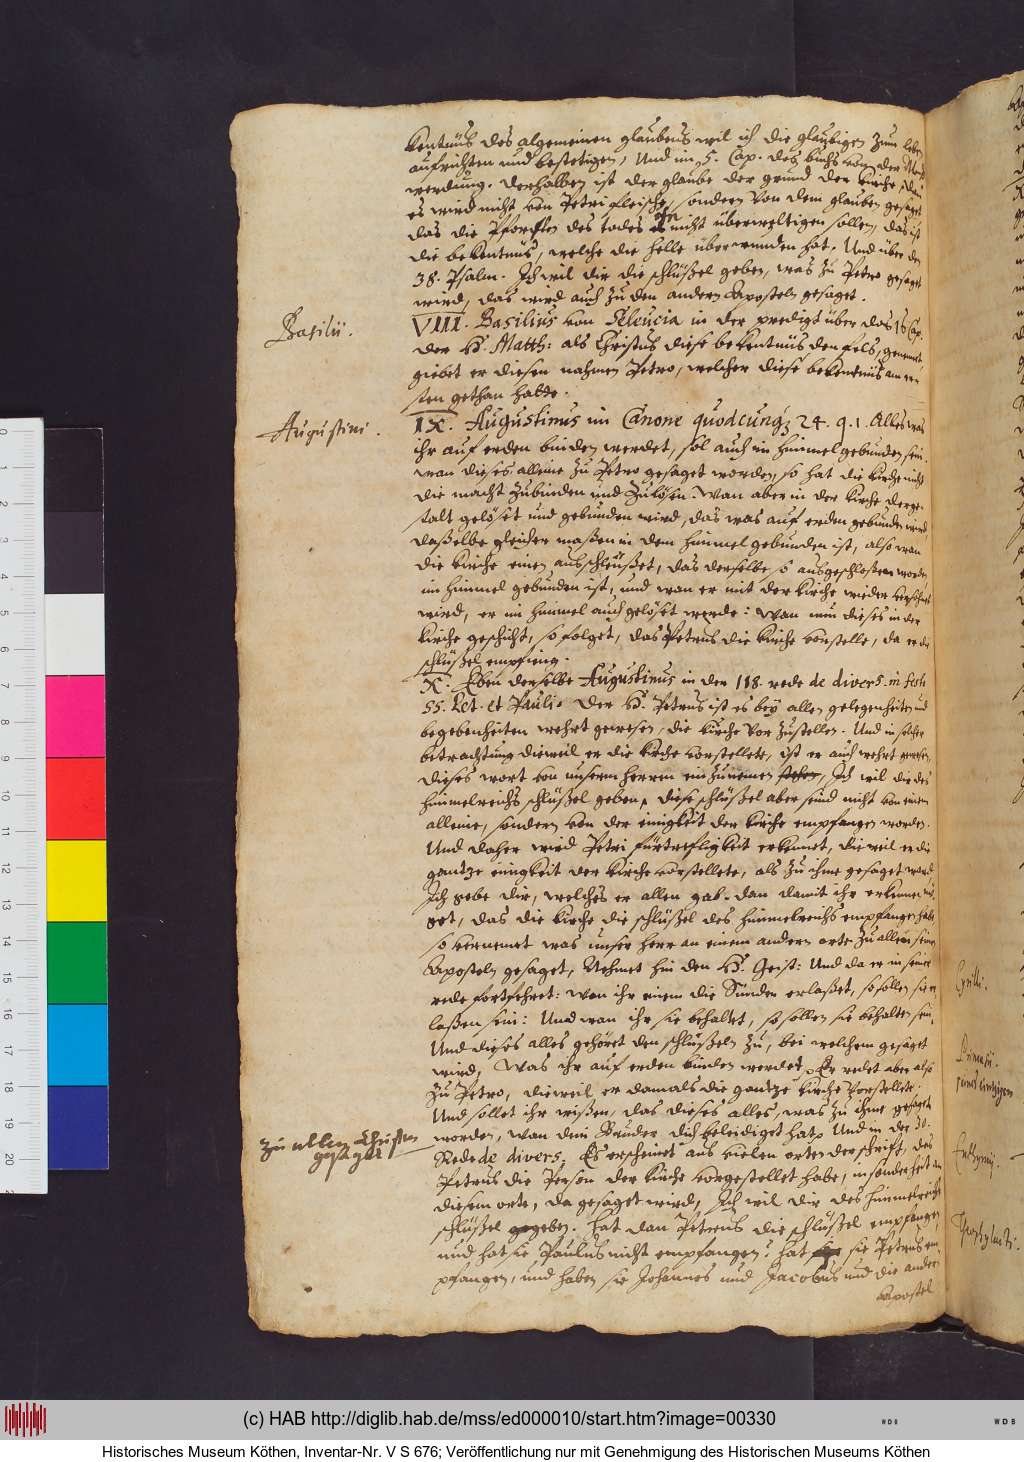 kentnüs des algemeinen glaubens wil ich die glaubigen zum leben
aufrichten und bestetigen, Und im 5. Cap. des buchs von der
werdung. derhalben ist der glaube der grund der kirche,
es wird nicht von Petri fleische, sondern von dem glauben gesaget
das die Pforten des todes nicht überweltigen sollen, das ist
die bekentnüs, welche die helle überwunden hat. Und über den
38. Psalm. Ich wil dir die schlüßel geben, was zu Petro gesaget
wird, das wird auch zu den andern Aposteln gesaget.
Basilii.
VIII. Basilius von Seleucia in der predigt über das 16 Cap.
der H. Matth: als Christus diese bekentnüs den fels, genennet
giebet er diesen nahmen Petro, welcher diese bekentnüs am er-
sten gethan habe.
Augustini.
IX. Augustinus im Canone quodcunq; 24. q. 1. Alles was
ihr auf erden binden werdet, sol auch im himmel gebunden sein.
wan dieses alleine zu Petro gesaget worden, so hat die kirche nicht
die macht zubinden und zulösen. Wan aber in der kirche derge-
stalt gelöset und gebunden wird, das was auf erden gebunden wird
dasselbe gleicher maßen in dem himmel gebunden ist, also wan
die kirche einen ausschleußet, das derselbe so ausgeschloßen worden
im himmel gebunden ist, und wan er mit der kirche wieder versöhnet
wird, er im himmel auch gelöset werde: Wan nun dieses in der
kirche geschicht, so folget, das Petrus die kirche vorstelle, da er die
schlüßel empfieng.
X. Eben derselbe Augustinus in der 118. rede de divers. in festo
SS. Pet. et Pauli. Der H. Petrus ist es bey allen gelegenheiten und
begebenheiten wehrt gewesen, die kirche vor zustellen. Und in solcher
betrachtung dieweil er die kirche vorstellete, ist er auch wehrt gewesen,
dieses wort von unserm herren einzunemen, Ich wil dir des
himmelreichs schlüßel geben, diese schlüßel aber seind nicht von einem
alleine, sondern von der einigkeit der kirche empfangen worden.
Und daher wird Petri fürtrefligkeit erkennet, dieweil er die
gantze einigkeit der kirche vorstellete, als zu ihme gesaget ward
Ich gebe dir, welches er allen gab. dan damit ihr erkennen mö-
get, das die kirche die schlüßel des himmelreichs empfangen habe
so vernemet was unser herr an einem andern orte zu allen seinen
Aposteln gesaget, Nehmet hin den H. Geist: Und da er in seiner
rede fortfehret: Wan ihr einem die Sünden erlaßet, so sollen sie er-
laßen sein: Und wan ihr sie behaltet, so sollen sie behalten sein.
Und dieses alles gehöret den schlüßeln zu, bei welchem gesaget
wird, Was ihr auf erden binden werdet, Er redet aber also
zu Petro, dieweil er damals die gantze kirche vorstellete.
Und sollet ihr wißen, das dieses alles, was zu ihme gesaget
zu allen Christen gesaget
worden, wan dein Bruder dich beleidiget hat. Und in der 50.
Rede de divers. Es erscheinet aus vielen orten der schrift, das
Petrus die Person der kirche vorgestellet habe, insonderheit an
diesem orte, da gesaget wird, Ich wil dir des himmelreichs
schlüßel geben. hat dan Petrus die schlüßel empfangen,
und hat sie Paulus nicht empfangen? hat sie Petrus em-
pfangen, und haben sie Johannes und Jacobus und die andern
Apostel
Cyrilli.
(c) HAB http://diglib.hab.de/mss/ed000010/start.htm?image=00330
Historisches Museum Köthen, Inventar-Nr. V S 676; Veröffentlichung nur mit Genehmigung des Historischen Museums Köthen